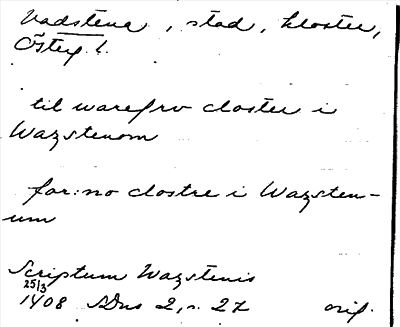 Vadstena, stad, kloster,
Östergl.
til warefrv closter i
Wazstenom
for:no clostre i Wazsten-
um
Scriptum Wazstenis
25/3
1408 SDns 2, s. 27 orig.